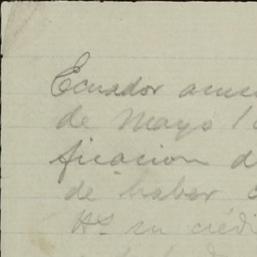 Ecuador
de Mayo 1
ficacion d
de haber
su crédi